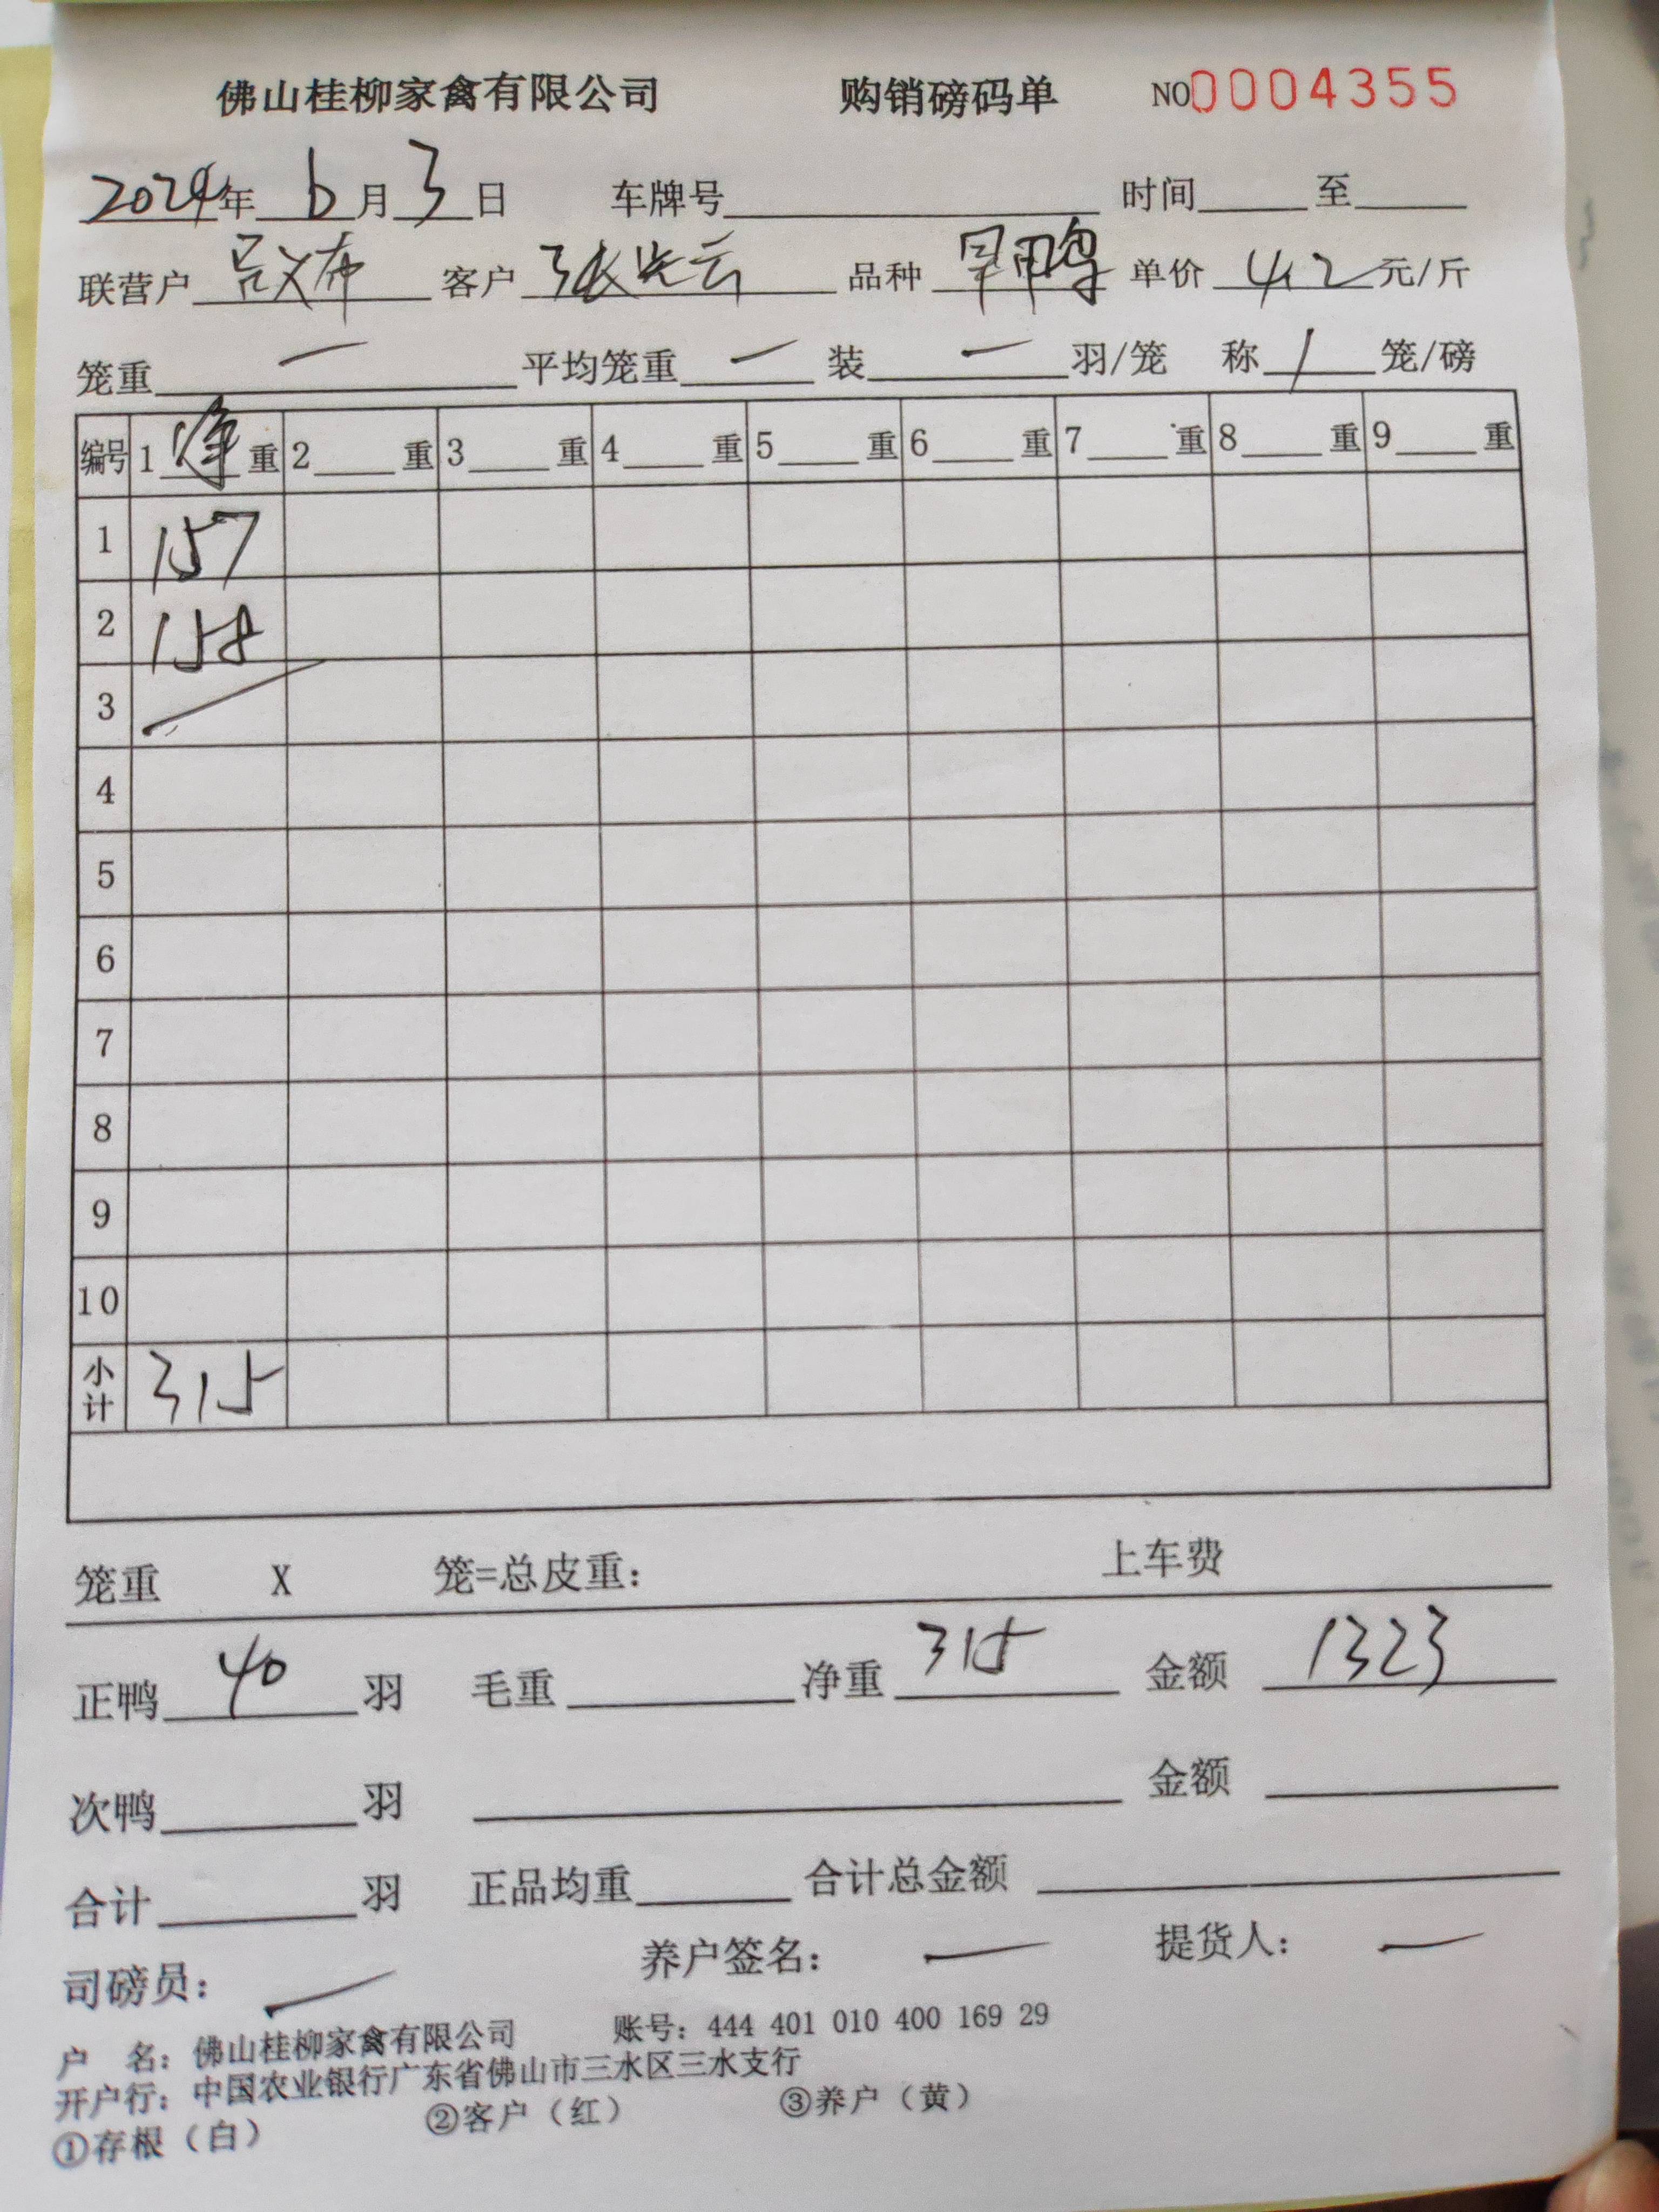 佛山桂柳家禽有限公司 购销磅码单 NO0004355
2024年 6月3日 车牌号 时间 至
联营户 吕义布 客户 张先云 品种 旱鸭 单价 4.2 元/斤
笼重 一 平均笼重 一 装 一 羽/笼 称 1 笼/磅
编号 1 净 重 2 重 3 重 4 重 5 重 6 重 7 重 8 重 9 重
1 157
2 158
3
4
5
6
7
8
9
10
小计 315
笼重 X 笼=总皮重: 上车费
正鸭 40 羽 毛重 净重 315 金额 1323
次鸭 羽 金额
合计 羽 正品均重 合计总金额
司磅员: 养户签名: 一 提货人: 一
户 名: 佛山桂柳家禽有限公司 账号: 444 401 010 400 169 29
开户行: 中国农业银行广东省佛山市三水区三水支行
①存根（白） ②客户（红） ③养户（黄）